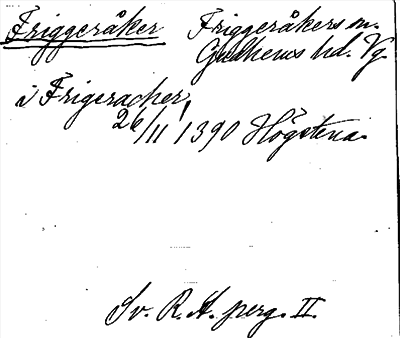 Friggeråker Friggeråkers sn.
Gudhems hd. Vg.
i Frigeracher,
26/11 1390 Högstena.
Sv. R. A. perg. II.